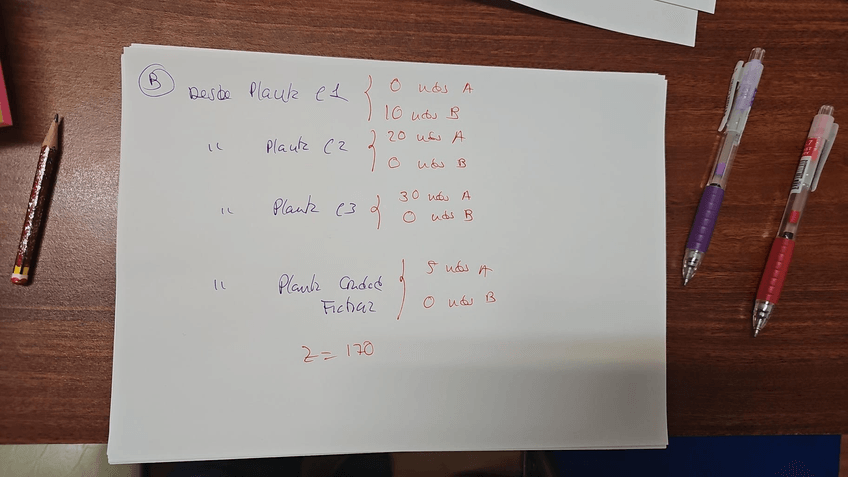 B Desde Planta C1 0 uds A
10 uds B
" Planta C2 20 uds A
0 uds B
" Planta C3 30 uds A
0 uds B
" Planta Ciudad 5 uds A
Ficticia 0 uds B
Z = 170